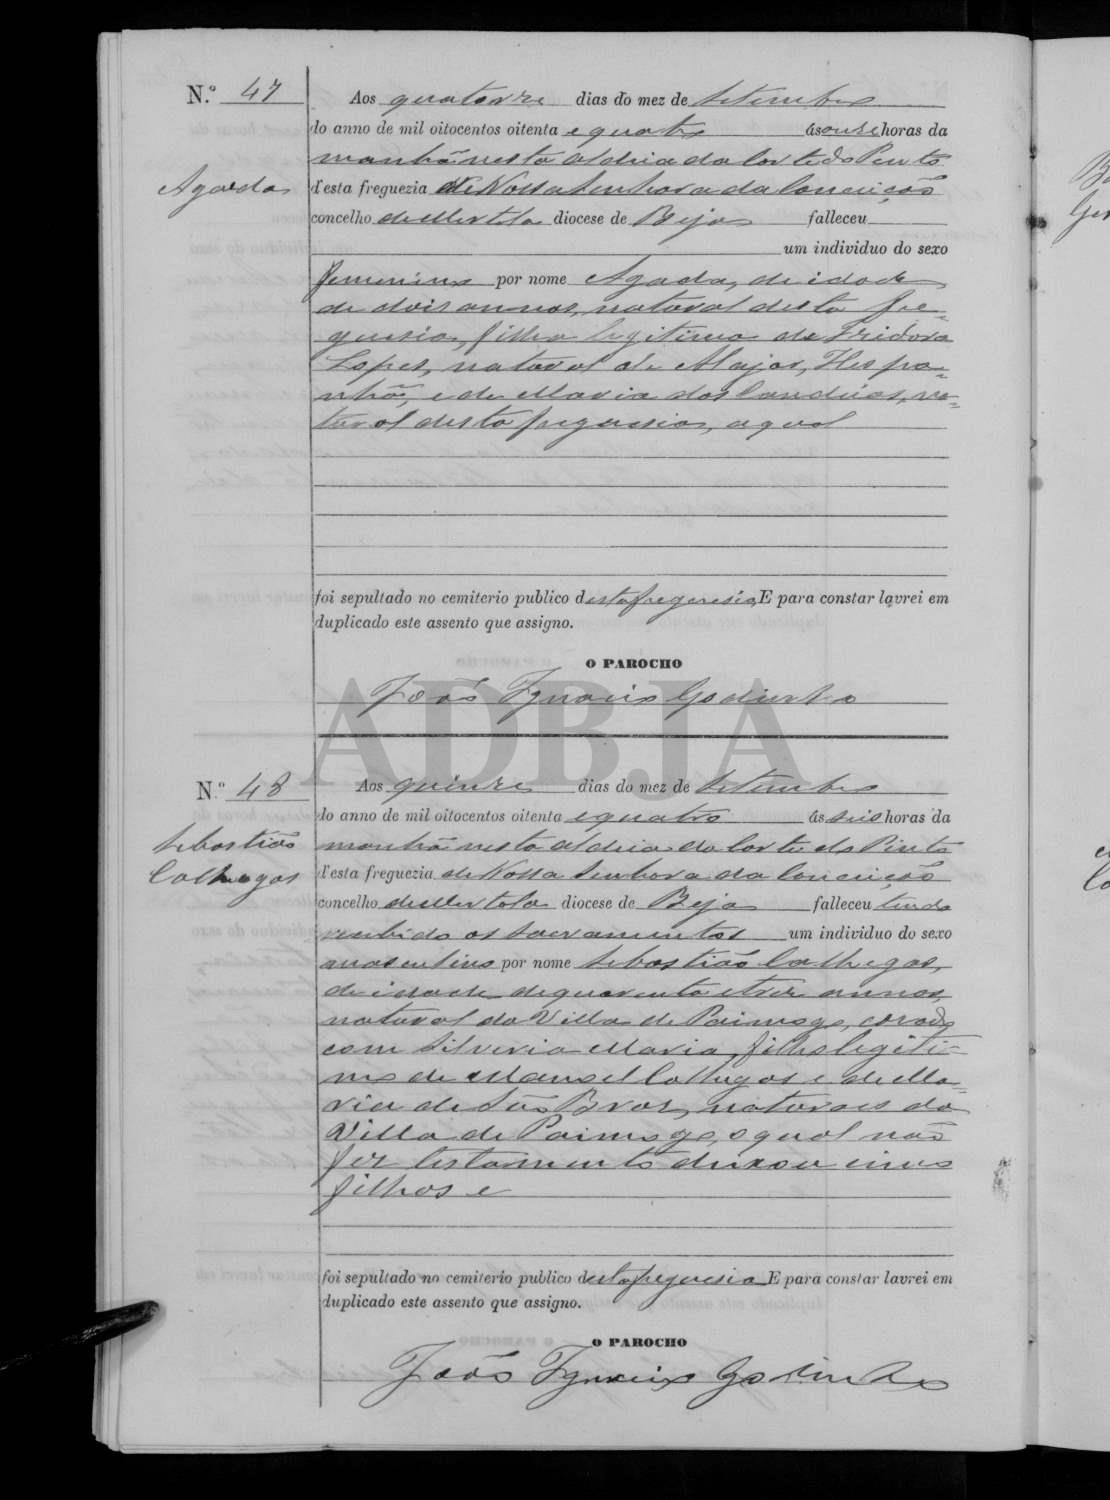 N.º 47
Aos quatorze dias do mez de Setembro
do anno de mil oitocentos oitenta e quatro ás onze horas da
manhã nesta aldeia da Corte do Pinto
Agada
d'esta freguezia de Nossa Senhora da Conceição
concelho de Mertola diocese de Beja falleceu
um individuo do sexo
femenino por nome Agada, de idade
de dois annos, natural desta fre=
guesia, filha legitima de Izidoro
Lopes, natural de Alajar, Hespa=
nhã, e de Maria das Candeias, na=
tural desta freguesia, a qual
foi sepultado no cemiterio publico desta freguesia, E para constar lavrei em
duplicado este assento que assigno.
O PAROCHO
João Ignacio Godinho
ADBJA
N.º 48
Aos quinze dias do mez de Setembro
do anno de mil oitocentos oitenta e quatro ás seis horas da
Sebastião
manhã nesta aldeia da Corte do Pinto
Colhegas
d'esta freguezia de Nossa Senhora da Conceição
concelho de Mertola diocese de Beja falleceu tendo
recebido os sacramentos um individuo do sexo
masculino por nome Sebastião Colhegas,
de idade de quarenta e tres annos,
natural da Villa de Paimogo, casado
com Silveria Maria, filho legiti=
mo de Manoel Colhegas e de Ma=
ria de São Braz, naturaes da
Villa de Paimogo, o qual não
fez testamento deixou cinco
filhos e
foi sepultado no cemiterio publico desta freguesia E para constar lavrei em
duplicado este assento que assigno.
O PAROCHO
João Ignacio Godinho